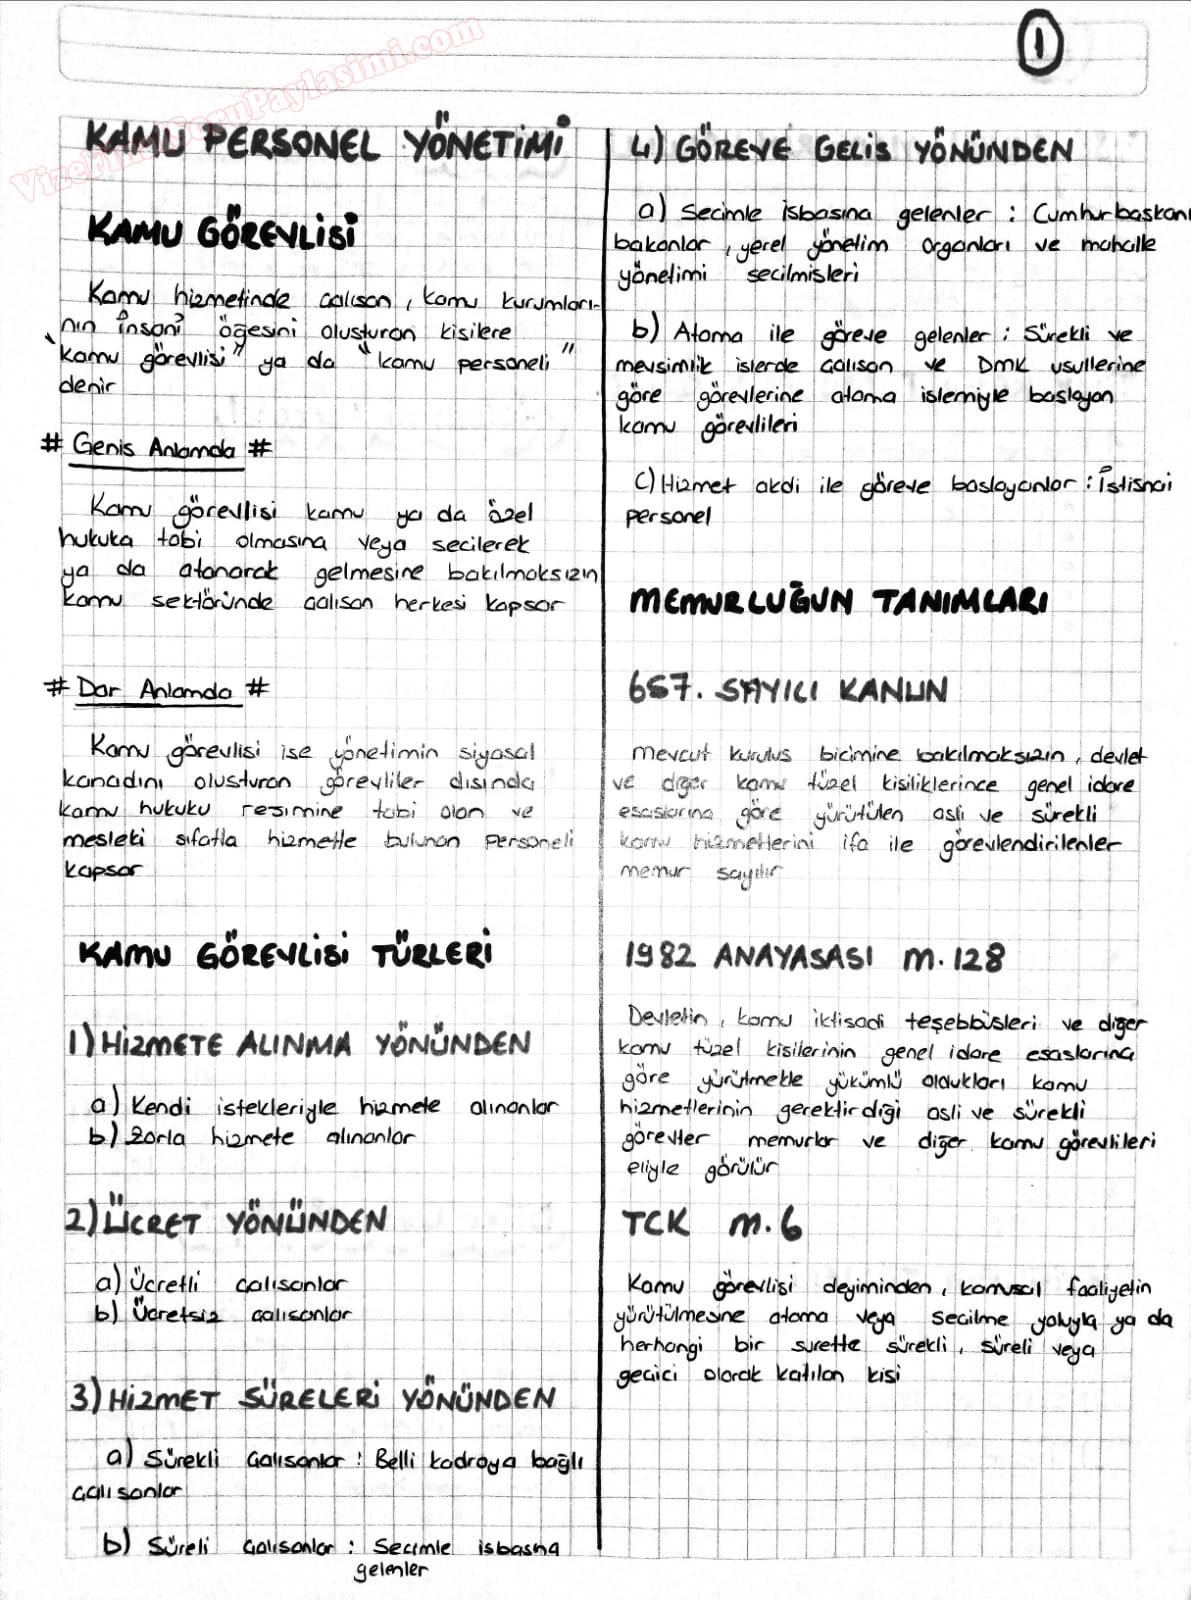 1
VizeFinalSoruPaylasimi.com
KAMU PERSONEL YÖNETİMİ
KAMU GÖREVLİSİ
Kamu hizmetinde calısan, kamu kurumları-
nın İnsani öğesini olusturan kisilere
"kamu görevlisi" ya da "kamu personeli"
denir
# Genis Anlamda #
Kamu görevlisi kamu ya da özel
hukuka tabi olmasına veya secilerek
ya da atanarak gelmesine bakılmaksızın
kamu sektöründe calısan herkesi kapsar
# Dar Anlamda #
Kamu görevlisi ise yönetimin siyasal
kanadını olusturan görevliler dısında
kamu hukuku resimine tabi olan ve
mesleki sıfatla hizmette bulunan personeli
kapsar
KAMU GÖREVLİSİ TÜRLERİ
1) HİZMETE ALINMA YÖNÜNDEN
a) Kendi istekleriyle hizmete alınanlar
b) Zorla hizmete alınanlar
2) ÜCRET YÖNÜNDEN
a) Ücretli calısanlar
b) Ücretsiz calısanlar
3) HİZMET SÜRELERİ YÖNÜNDEN
a) Sürekli calısanlar : Belli kadroya bağlı
calısanlar
b) Süreli calısanlar : Secimle isbasına
gelenler
4) GÖREVE GELİS YÖNÜNDEN
a) Secimle isbasına gelenler : Cumhurbaskanı
bakanlar, yerel yönetim organları ve mahalle
yönetimi secilmisleri
b) Atama ile göreve gelenler : Sürekli ve
mevsimlik islerde calısan ve DMK usullerine
göre görevlerine atama islemiyle baslayan
kamu görevlileri
c) Hizmet akdi ile göreve baslayanlar : İstisnai
personel
MEMURLUĞUN TANIMLARI
657. SAYILI KANUN
mevcut kurulus bicimine bakılmaksızın, devlet
ve diğer kamu tüzel kisiliklerince genel idare
esaslarına göre yürütülen asli ve sürekli
kamu hizmetlerini ifa ile görevlendirilenler
memur sayılır
1982 ANAYASASI m.128
Devletin, kamu iktisadi teşebbüsleri ve diğer
kamu tüzel kisilerinin genel idare esaslarına
göre yürütmekle yükümlü oldukları kamu
hizmetlerinin gerektirdiği asli ve sürekli
görevler memurlar ve diğer kamu görevlileri
eliyle görülür
TCK m.6
Kamu görevlisi deyiminden, kamusal faaliyetin
yürütülmesine atama veya secilme yoluyla ya da
herhangi bir surette sürekli, süreli veya
gecici olarak katılan kisi